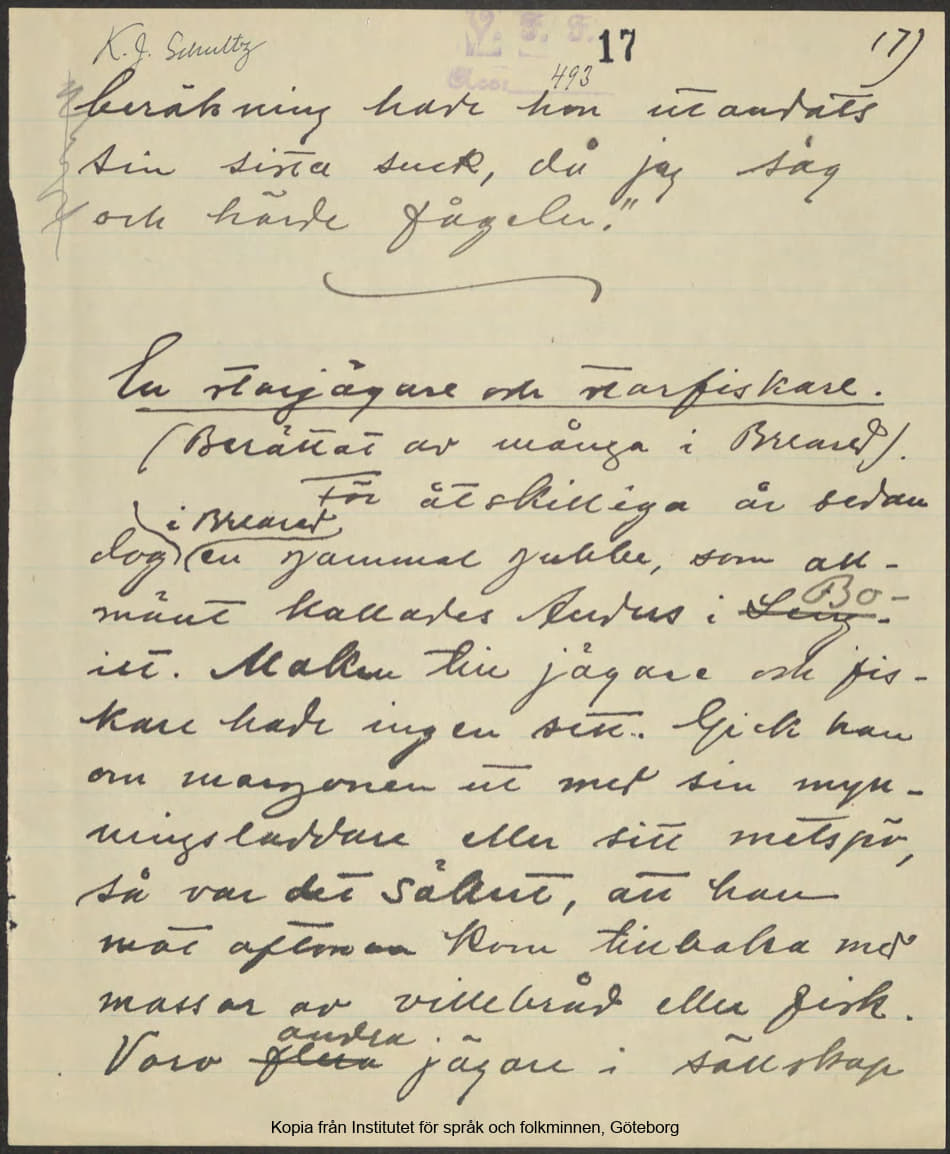 K. J. Schultz
V. F. F.
17
17)
Acc. 493
beräkning hade hon utandats
sin sista suck, då jag såg
och hörde fågeln."
En storjägare och storfiskare.
(Berättat av många i Breared).
För åtskilliga år sedan
i Breared
dog en gammal gubbe, som all-
mänt kallades Anders i Bo-
et. Maken till jägare och fis-
kare hade ingen sett. Gick han
om morgonen ut med sin myn-
ningsladdare eller sitt metspö,
så var det säkert, att han
mot aftonen kom tillbaka med
massor av villebråd eller fisk.
andra
Voro flera jägare i sällskap
Kopia från Institutet för språk och folkminnen, Göteborg